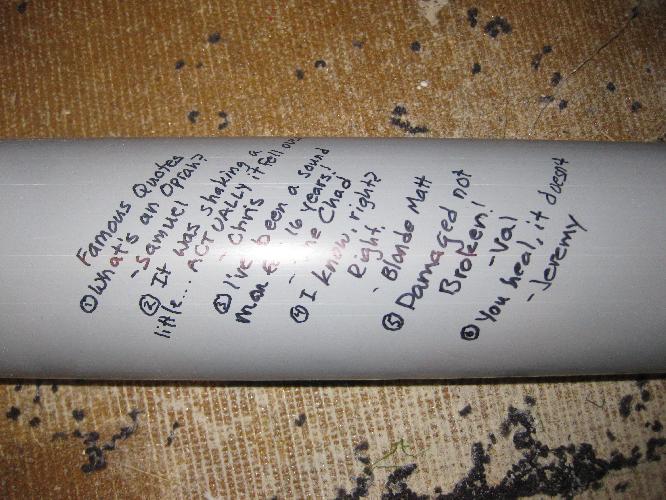 Famous Quotes
① What's an Oprah?
- Samuel
② It was shaking a
little... ACTUALLY it fell
- Chris
③ I've been a sound
man 16 years!
Chad
④ I know, right?
Right.
- Blonde Matt
⑤ Damaged not
Broken!
- Val
⑥ You heal, it doesn't
- Jeremy